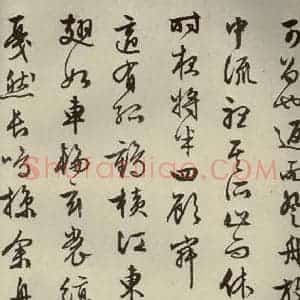 可留也返而登舟放
中流聽其所止而休
時夜將半四顧寂
適有孤鶴橫江東
翅如車輪玄裳縞
戛然長鳴掠余舟